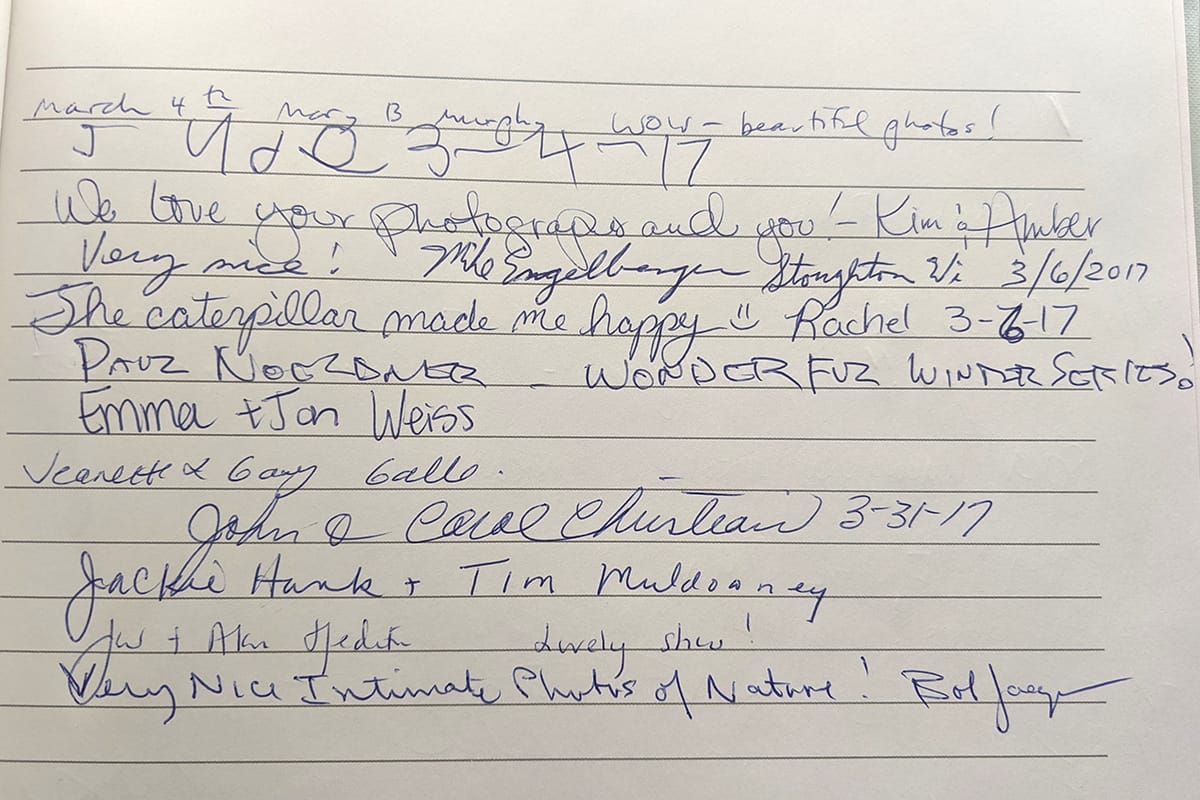 March 4th Mary B Murphy wow - beautiful photos!
3-4-17
We love your photograps and you! - Kim & Amber
Very nice! Mike Engelberger Stoughton Wi 3/6/2017
The caterpillar made me happy :) Rachel 3-6-17
PAUL NOELDNER - WONDERFUL WINTER SERIES!
Emma + Jon Weiss
Jeanette & Gary Gallo.
John & Carol Christian 3-31-17
Jackie Hank + Tim Muldooney
+ Alan Lovely show!
Very Nice Intimate Photos of Nature! Bob Jaeger